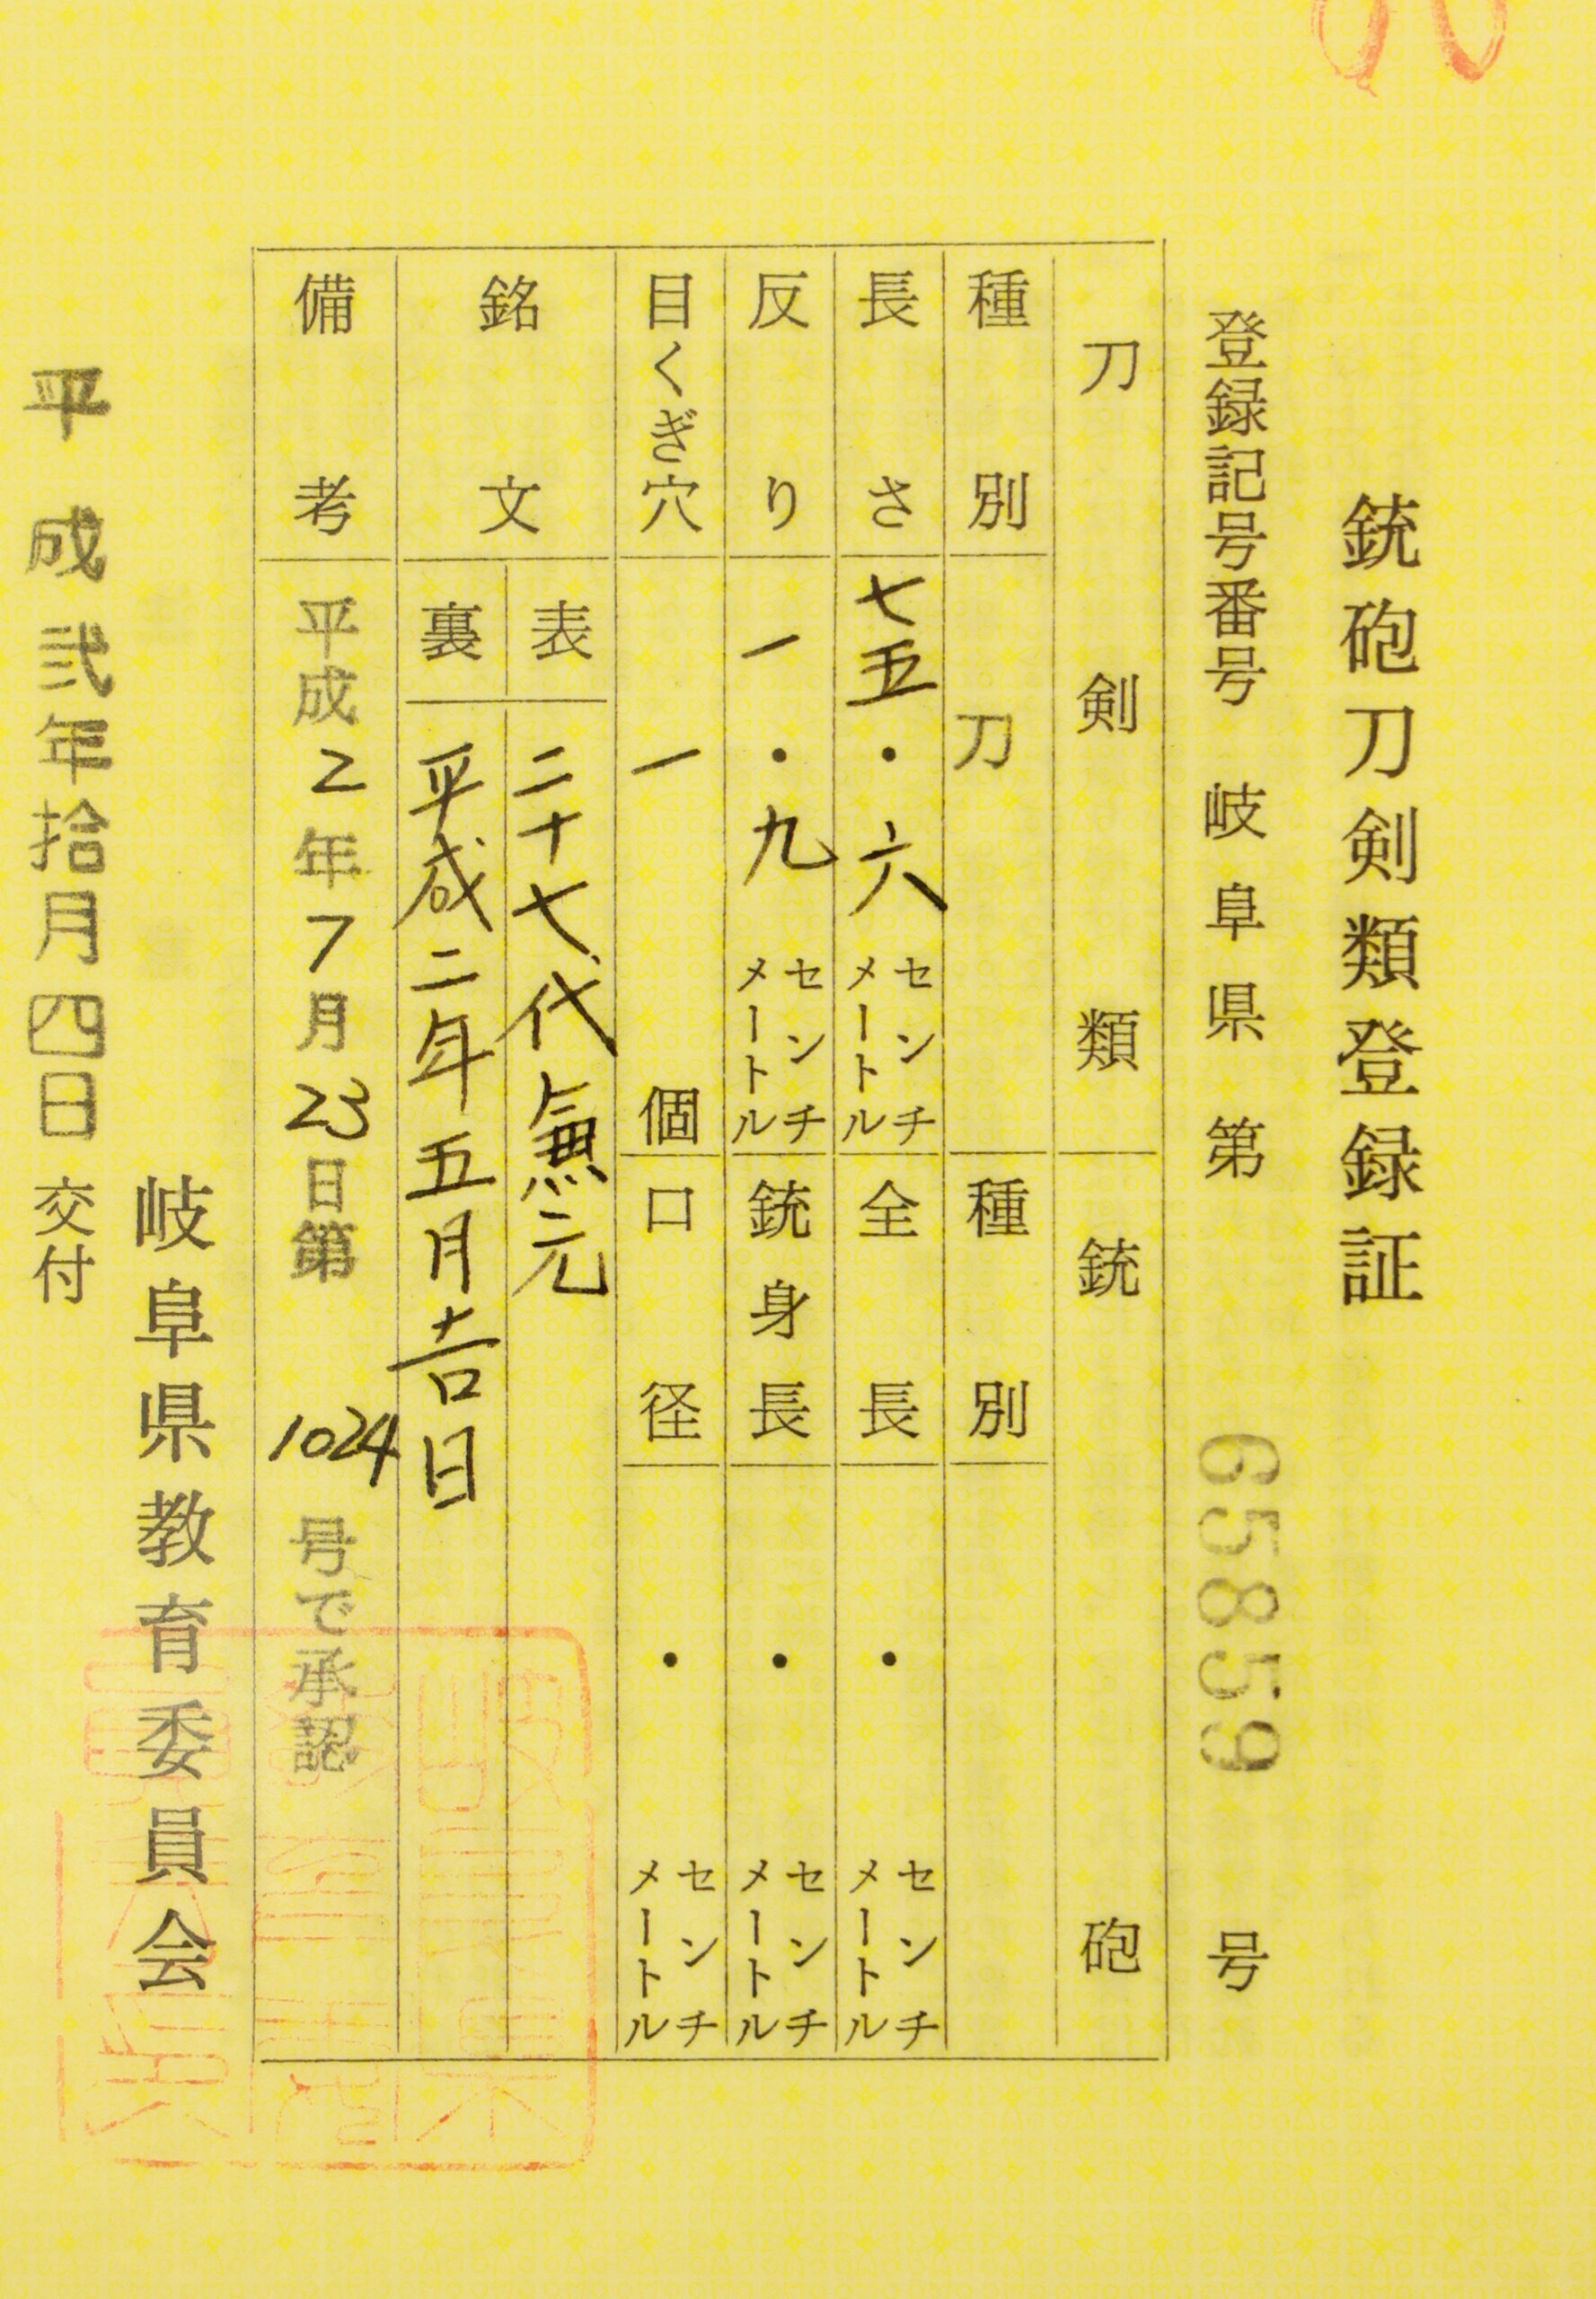 銃砲刀剣類登録証
登録記号番号 岐阜県 第 65859 号
刀剣類 銃砲
種別 刀 種別
長さ 七五・六 センチメートル 全長 ・ センチメートル
反り 一・九 センチメートル 銃身長 ・ センチメートル
目くぎ穴 一 個 口径 ・ センチメートル
銘文 表 二十七代兼元
裏 平成二年五月吉日
備考 平成2年7月23日第 1024 号で承認
岐阜県教育委員会
平成弐年拾月四日交付